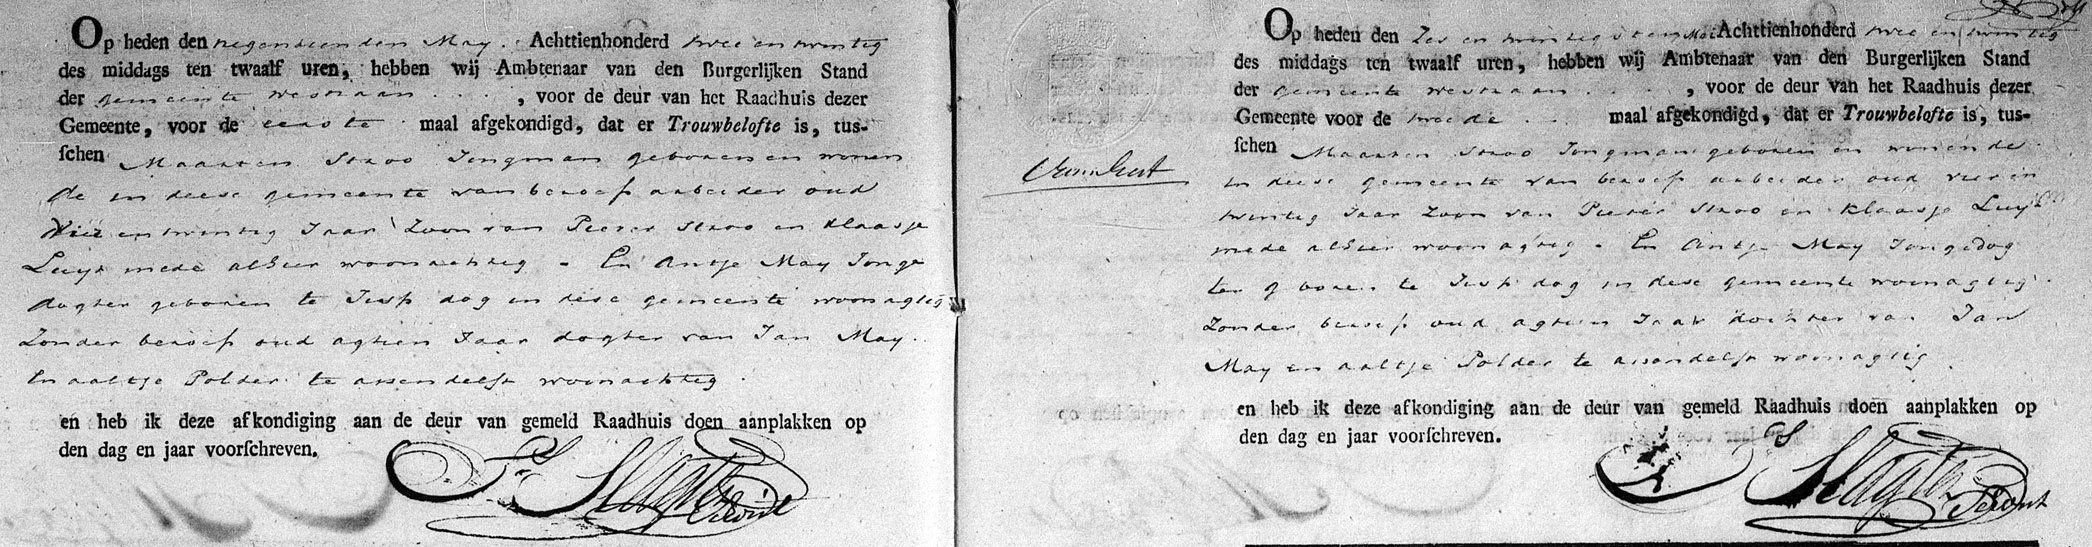 Op heden den negentienden May. Achttienhonderd twee en twintig
des middags ten twaalf uren, hebben wij Ambtenaar van den Burgerlijken Stand
der gemeente westzaan . . . . , voor de deur van het Raadhuis dezer
Gemeente, voor de eerste maal afgekondigd, dat er Trouwbelofte is, tus-
schen Maarten Stroo Jongman geboren en wonen
de in deese gemeente van beroep arbeider oud
vier en twintig Jaar Zoon van Pieter Stroo en Klaasje
Luyt mede alhier woonachteg - En Antje May Jonge
dogter geboren te Jisp dog in dese gemeente woonagteg
Zonder beroep oud agtien Jaar dogter van Jan May.
En aaltje Polder te assendelft woonachteg.
en heb ik deze afkondiging aan de deur van gemeld Raadhuis doen aanplakken op
den dag en jaar voorschreven.
Slagter
Op heden den Zes en twintigsten Mei Achttienhonderd twee en twintig
des middags ten twaalf uren, hebben wij Ambtenaar van den Burgerlijken Stand
der gemeente westzaan . . . . , voor de deur van het Raadhuis dezer
Gemeente voor de tweede . . . maal afgekondigd, dat er Trouwbelofte is, tus-
schen Maarten Stroo Jongman geboren en wonende.
in deese gemeente van beroep arbeider oud vier en
twintig Jaar Zoon van Pieter Stroo en Klaasje Luyt
mede alhier woonagteg - En Antje May Jongedog
ter geboren te Jisp dog in dese gemeente woonagteg.
Zonder beroep oud agtien Jaar dochter van Jan
May en aaltje Polder te assendelft woonagtig.
en heb ik deze afkondiging aan de deur van gemeld Raadhuis doen aanplakken op
den dag en jaar voorschreven.
Slagter